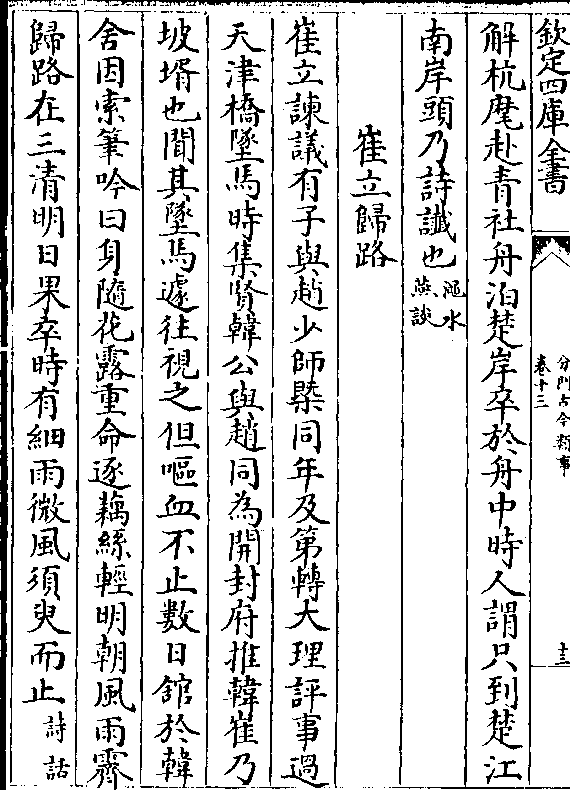 欽定四庫全書
分門古今類事
卷十三
十三
解杭麾赴青社舟泊楚岸卒於舟中時人謂只到楚江
南岸頭乃詩讖也
澠水
燕談
崔立歸路
崔立諫議有子與趙少師槩同年及第轉大理評事過
天津橋墜馬時集賢韓公與趙同為開封府推韓崔乃
坡壻也聞其墜馬遽往視之但嘔血不止數日舘於韓
舍因索筆吟曰身隨花露重命逐藕絲輕明朝風雨霽
歸路在三清明日果卒時有細雨微風須臾而止
詩話